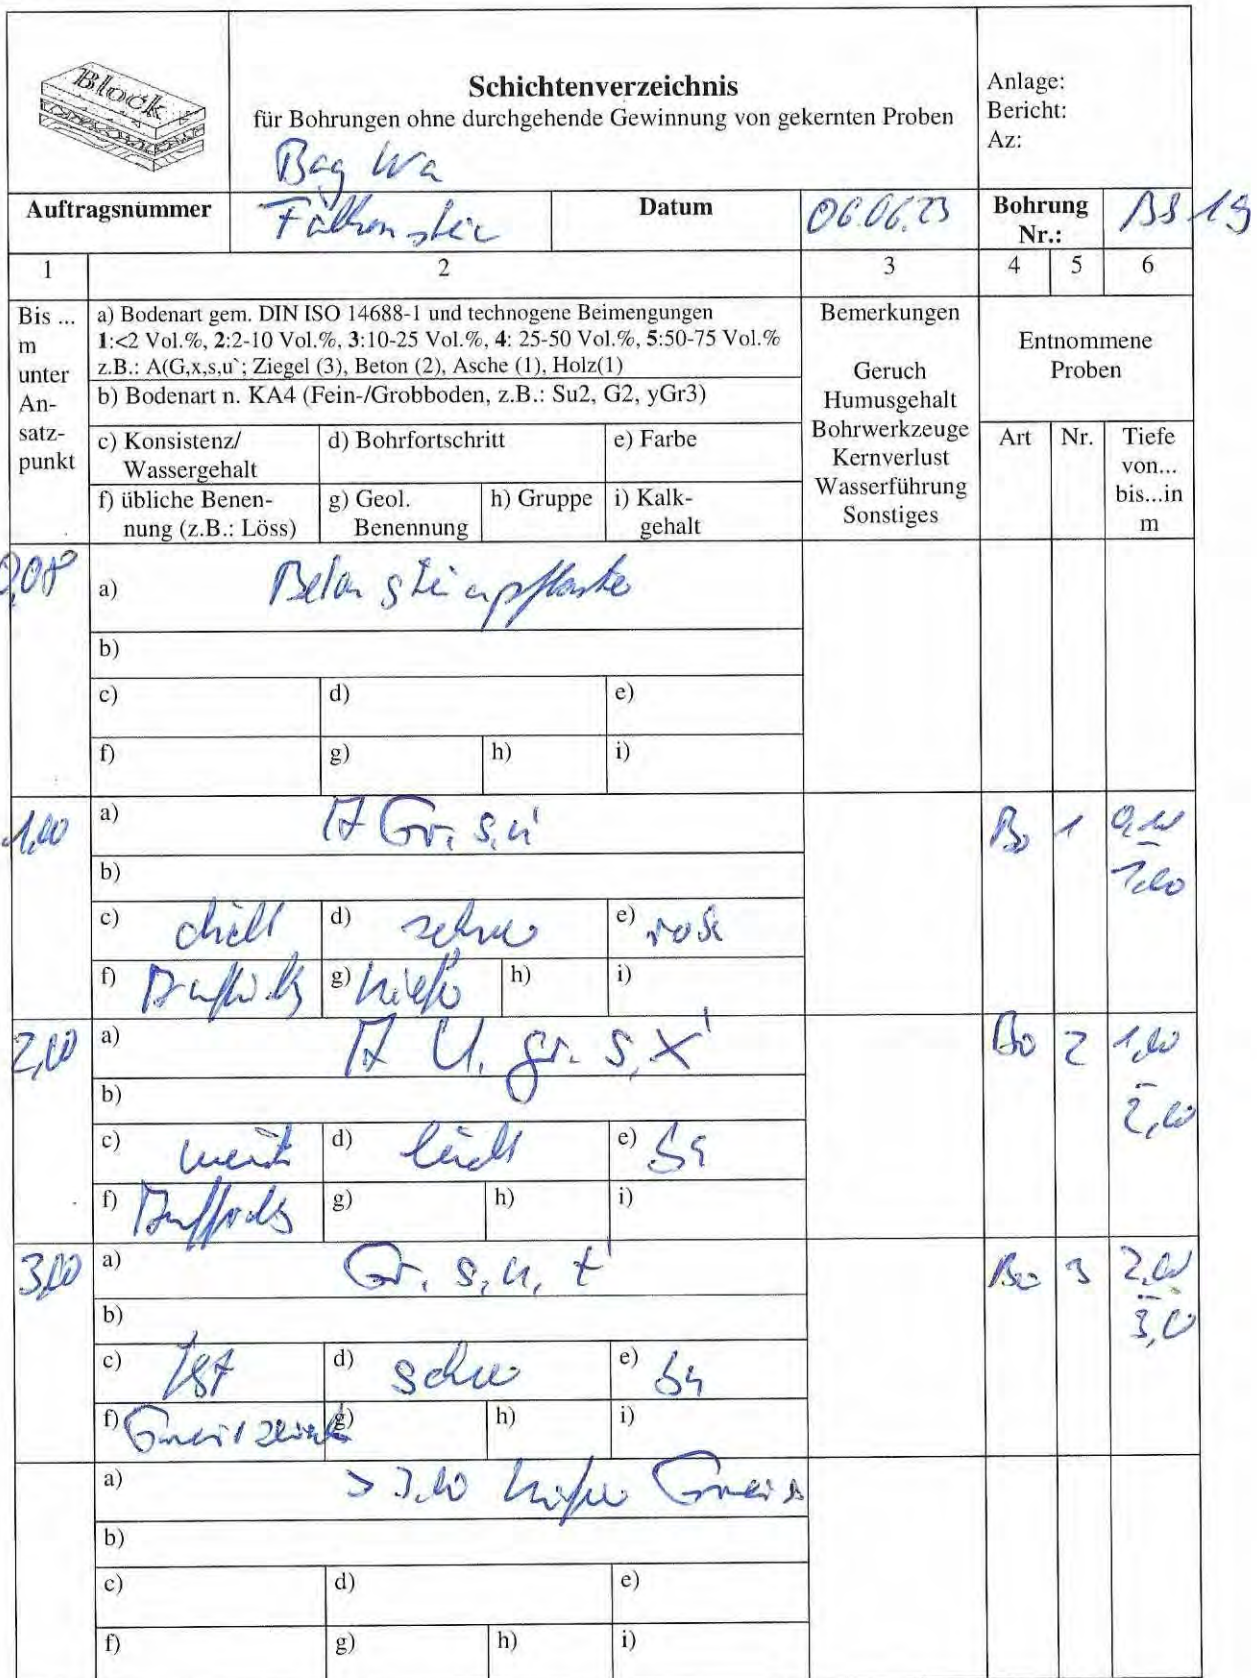 Block
Schichtenverzeichnis
für Bohrungen ohne durchgehende Gewinnung von gekernten Proben
Anlage:
Bericht:
Az:
Bag Wa
Auftragsnummer
Falkenstein
Datum
06.06.23
Bohrung
Nr.:
BS 19
1
2
3
4
5
6
Bis ...
m
unter
An-
satz-
punkt
a) Bodenart gem. DIN ISO 14688-1 und technogene Beimengungen
1:<2 Vol.%, 2:2-10 Vol.%, 3:10-25 Vol.%, 4: 25-50 Vol.%, 5:50-75 Vol.%
z.B.: A(G,x,s,u`; Ziegel (3), Beton (2), Asche (1), Holz(1)
b) Bodenart n. KA4 (Fein-/Grobboden, z.B.: Su2, G2, yGr3)
c) Konsistenz/
Wassergehalt
d) Bohrfortschritt
e) Farbe
f) übliche Benen-
nung (z.B.: Löss)
g) Geol.
Benennung
h) Gruppe
i) Kalk-
gehalt
Bemerkungen
Geruch
Humusgehalt
Bohrwerkzeuge
Kernverlust
Wasserführung
Sonstiges
Entnommene
Proben
Art
Nr.
Tiefe
von...
bis...in
m
0,08
a) Betonsteinpflaster
b)
c)
d)
e)
f)
g)
h)
i)
1,00
a) A Gr, s, u'
Bo
1
1,00
b)
c)
d)
e)
f)
g)
h)
i)
2,00
a) A U, gr, s, x'
Bo
2
1,00
-
2,00
b)
c) weich
d) leicht
e)
f)
g)
h)
i)
3,00
a) Gr, s, u, t'
Bo
3
2,00
-
3,0
b)
c)
d)
e)
f)
g)
h)
i)
a) > 3,00 Gneis
b)
c)
d)
e)
f)
g)
h)
i)